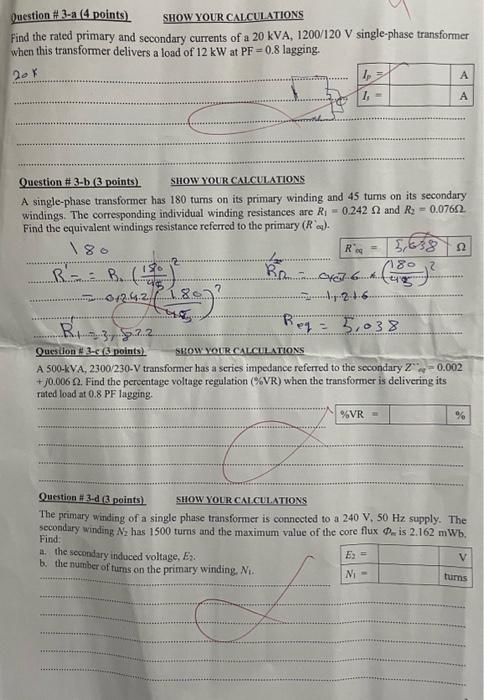 Question # 3-a (4 points) SHOW YOUR CALCULATIONS
Find the rated primary and secondary currents of a 20 kVA, 1200/120 V single-phase transformer
when this transformer delivers a load of 12 kW at PF = 0.8 lagging.
20 k
Ip = A
Is = A
Question # 3-b (3 points) SHOW YOUR CALCULATIONS
A single-phase transformer has 180 turns on its primary winding and 45 turns on its secondary
windings. The corresponding individual winding resistances are R1 = 0.242 Ω and R2 = 0.076Ω.
Find the equivalent windings resistance referred to the primary (R`eq).
R`eq = 5,038 Ω
180
R'= = R. (180/45)²
= 0,242 (180/45)²
R1 = 3,872
= 0,076 * (180/45)²
= 1,216
Req = 5,038
Question # 3-c (3 points) SHOW YOUR CALCULATIONS
A 500-kVA, 2300/230-V transformer has a series impedance referred to the secondary Z``eq = 0.002
+ j0.006 Ω. Find the percentage voltage regulation (%VR) when the transformer is delivering its
rated load at 0.8 PF lagging.
%VR = %
Question # 3-d (3 points) SHOW YOUR CALCULATIONS
The primary winding of a single phase transformer is connected to a 240 V, 50 Hz supply. The
secondary winding N2 has 1500 turns and the maximum value of the core flux Φm is 2.162 mWb.
Find:
a. the secondary induced voltage, E2.
b. the number of turns on the primary winding, N1.
E2 = V
N1 = turns